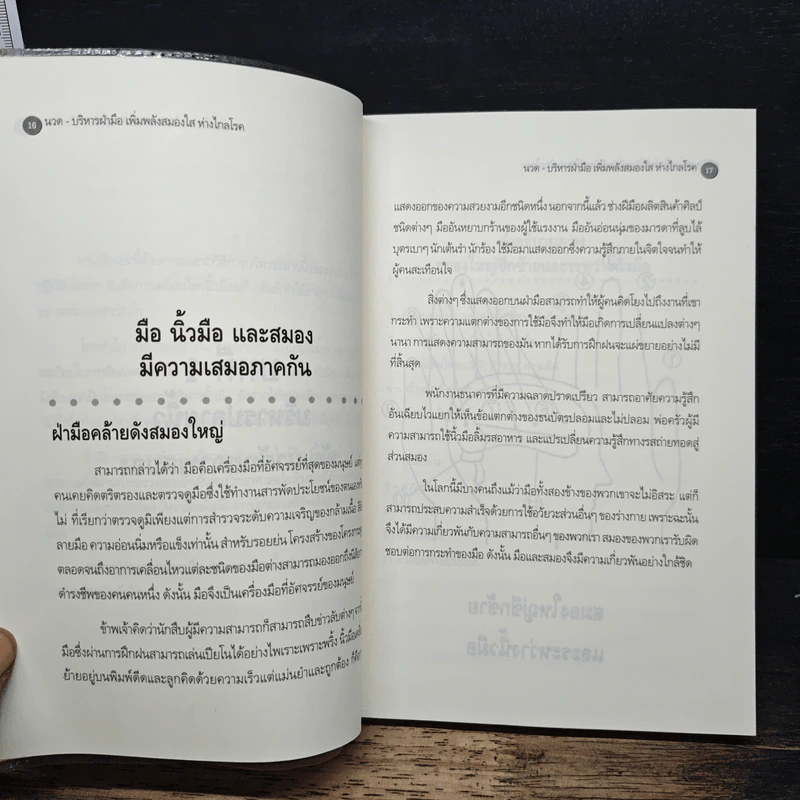 16 นวด - บริหารฝ่ามือ เพิ่มพลังสมองใส ห่างไกลโรค
มือ นิ้วมือ และสมอง
มีความเสมอภาคกัน
ฝ่ามือคล้ายดังสมองใหญ่
สามารถกล่าวได้ว่า มือคือเครื่องมือที่อัศจรรย์ที่สุดของมนุษย์
คนเคยคิดตริตรองและตรวจดูมือซึ่งใช้ทำงานสารพัดประโยชน์ของตนเอง
ไม่ ที่เรียกว่าตรวจดูมีเพียงแต่การสำรวจระดับความเจริญของกล้ามเนื้อ
ลายมือ ความอ่อนนิ่มหรือแข็งเท่านั้น สำหรับรอยย่น โครงสร้างของโครงกระดูก
ตลอดจนถึงอาการเคลื่อนไหวแต่ละชนิดของมือต่างสามารถมองออกถึง
ดำรงชีพของคนคนหนึ่ง ดังนั้น มือจึงเป็นเครื่องมือที่อัศจรรย์ของมนุษย์
ข้าพเจ้าคิดว่านักสืบผู้มีความสามารถก็สามารถสืบข่าวลับต่างๆ จาก
มือซึ่งผ่านการฝึกฝนสามารถเล่นเปียโนได้อย่างไพเราะเพราะพริ้ง นิ้วมือ
ย้ายอยู่บนพิมพ์ดีดและลูกคิดด้วยความเร็วแต่แม่นยำและถูกต้อง
นวด - บริหารฝ่ามือ เพิ่มพลังสมองใส ห่างไกลโรค 17
แสดงออกของความสวยงามอีกชนิดหนึ่ง นอกจากนี้แล้ว ช่างฝีมือผลิตสินค้าศิลป์
ชนิดต่างๆ มืออันหยาบกร้านของผู้ใช้แรงงาน มืออันอ่อนนุ่มของมารดาที่ลูบไล้
บุตรเบาๆ นักเต้นรำ นักร้อง ใช้มือมาแสดงออกซึ่งความรู้สึกภายในจิตใจจนทำให้
ผู้คนสะเทือนใจ
สิ่งต่างๆ ซึ่งแสดงออกบนฝ่ามือสามารถทำให้ผู้คนคิดโยงไปถึงงานที่เขา
กระทำ เพราะความแตกต่างของการใช้มือจึงทำให้มือเกิดการเปลี่ยนแปลงต่างๆ
นานา การแสดงความสามารถของมัน หากได้รับการฝึกฝนจะแผ่ขยายอย่างไม่มี
ที่สิ้นสุด
พนักงานธนาคารที่มีความฉลาดปราดเปรียว สามารถอาศัยความรู้สึก
อันเฉียบไวแยกให้เห็นข้อแตกต่างของธนบัตรปลอมและไม่ปลอม พ่อครัวผู้มี
ความสามารถใช้นิ้วมือลิ้มรสอาหาร และแปรเปลี่ยนความรู้สึกทางรสถ่ายทอดสู่
ส่วนสมอง
ในโลกนี้มีบางคนถึงแม้ว่ามือทั้งสองข้างของพวกเขาจะไม่อิสระ แต่ก็
สามารถประสบความสำเร็จด้วยการใช้อวัยวะส่วนอื่นๆ ของร่างกาย เพราะฉะนั้น
จึงได้มีความเกี่ยวพันกับความสามารถอื่นๆ ของพวกเรา สมองของพวกเรารับผิด
ชอบต่อการกระทำของมือ ดังนั้น มือและสมองจึงมีความเกี่ยวพันอย่างใกล้ชิด